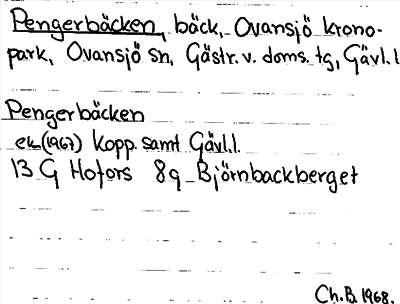 Pengerbäcken, bäck, Ovansjö krono-
park, Ovansjö sn, Gästr. v. doms. tg, Gävl. l
Pengerbäcken
ek (1967) Kopp. samt Gävl. l.
13 G Hofors 8g Björnbackberget
Ch. B. 1968.